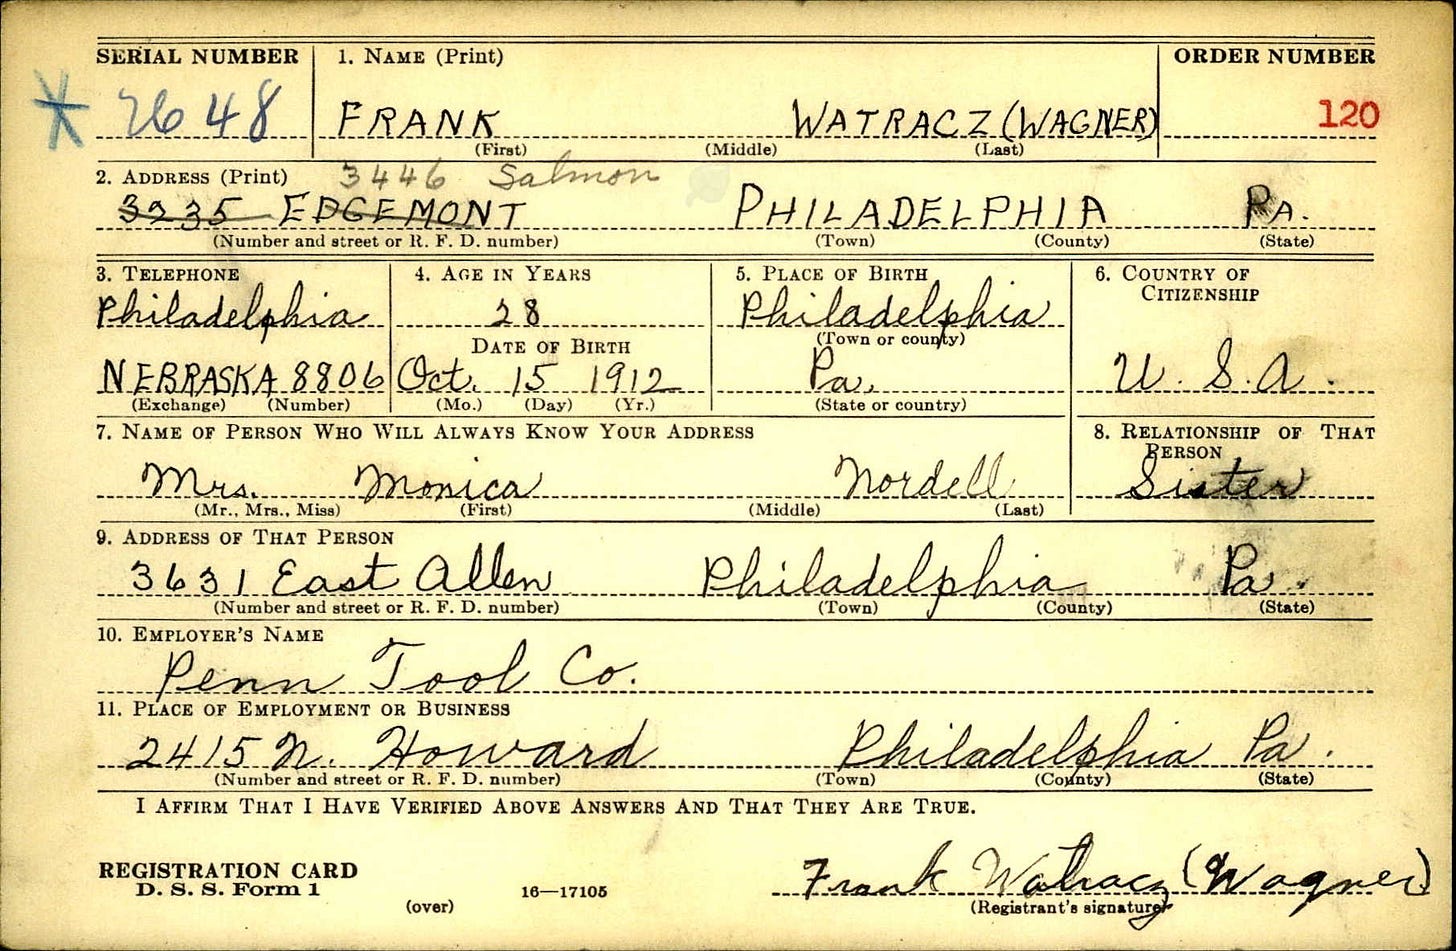 SERIAL NUMBER 1. NAME (Print) ORDER NUMBER
2648 FRANK WATRACZ (WAGNER) 120
(First) (Middle) (Last)
2. ADDRESS (Print) 3446 Salmon
3235 EDGEMONT PHILADELPHIA PA.
(Number and street or R. F. D. number) (Town) (County) (State)
3. TELEPHONE 4. AGE IN YEARS 5. PLACE OF BIRTH 6. COUNTRY OF CITIZENSHIP
Philadelphia 28 Philadelphia
DATE OF BIRTH (Town or county)
NEBRASKA 8806 Oct. 15 1912 Pa. U. S. A.
(Exchange) (Number) (Mo.) (Day) (Yr.) (State or country)
7. NAME OF PERSON WHO WILL ALWAYS KNOW YOUR ADDRESS 8. RELATIONSHIP OF THAT PERSON
Mrs. Monica Nordell Sister
(Mr., Mrs., Miss) (First) (Middle) (Last)
9. ADDRESS OF THAT PERSON
3631 East Allen Philadelphia Pa.
(Number and street or R. F. D. number) (Town) (County) (State)
10. EMPLOYER'S NAME
Penn Tool Co.
11. PLACE OF EMPLOYMENT OR BUSINESS
2415 N. Howard Philadelphia Pa.
(Number and street or R. F. D. number) (Town) (County) (State)
I AFFIRM THAT I HAVE VERIFIED ABOVE ANSWERS AND THAT THEY ARE TRUE.
REGISTRATION CARD
D. S. S. Form 1 16—17105 Frank Watracz (Wagner)
(over) (Registrant's signature)